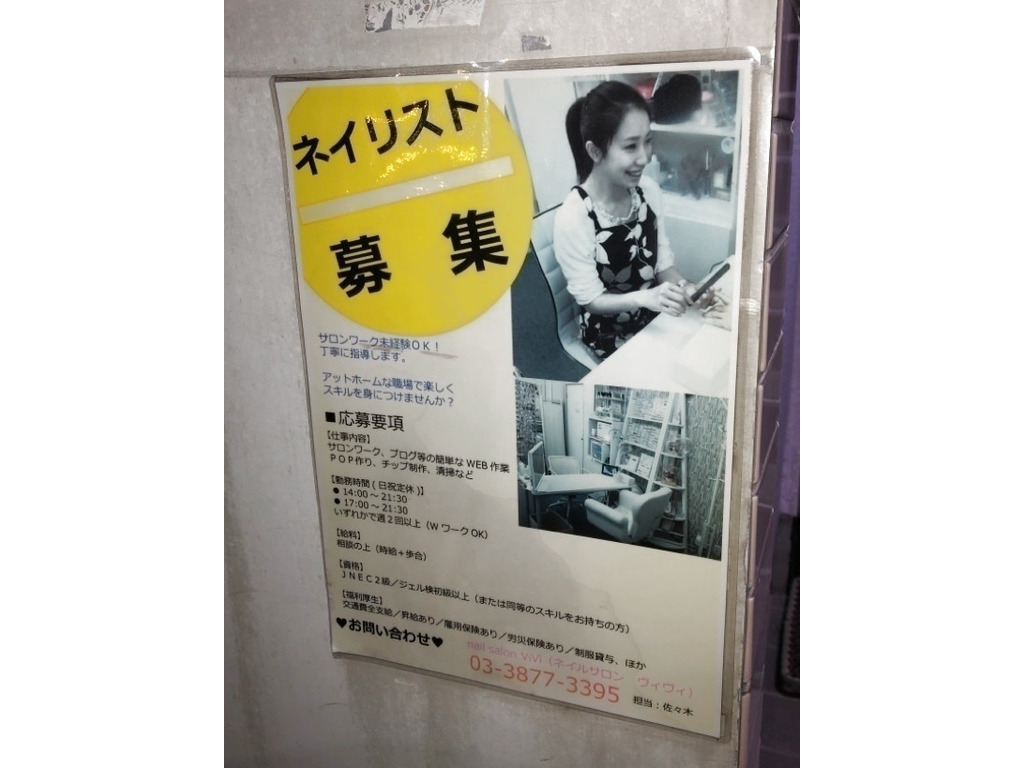 ネイリスト
募集
サロンワーク未経験OK！
丁寧に指導します。
アットホームな職場で楽しく
スキルを身につけませんか？
■応募要項
【仕事内容】
サロンワーク、ブログ等の簡単なWEB作業
ＰＯＰ作り、チップ制作、清掃など
【勤務時間(日祝定休)】
● 14:00～21:30
● 17:00～21:30
いずれかで週２回以上（WワークOK）
【給料】
相談の上（時給＋歩合）
【資格】
ＪＮＥＣ２級／ジェル検初級以上（または同等のスキルをお持ちの方）
【福利厚生】
交通費全支給／昇給あり／雇用保険あり／労災保険あり／制服貸与、ほか
♥お問い合わせ♥
nail salon ViVi（ネイルサロン　ヴィヴィ）
03-3877-3395
担当：佐々木